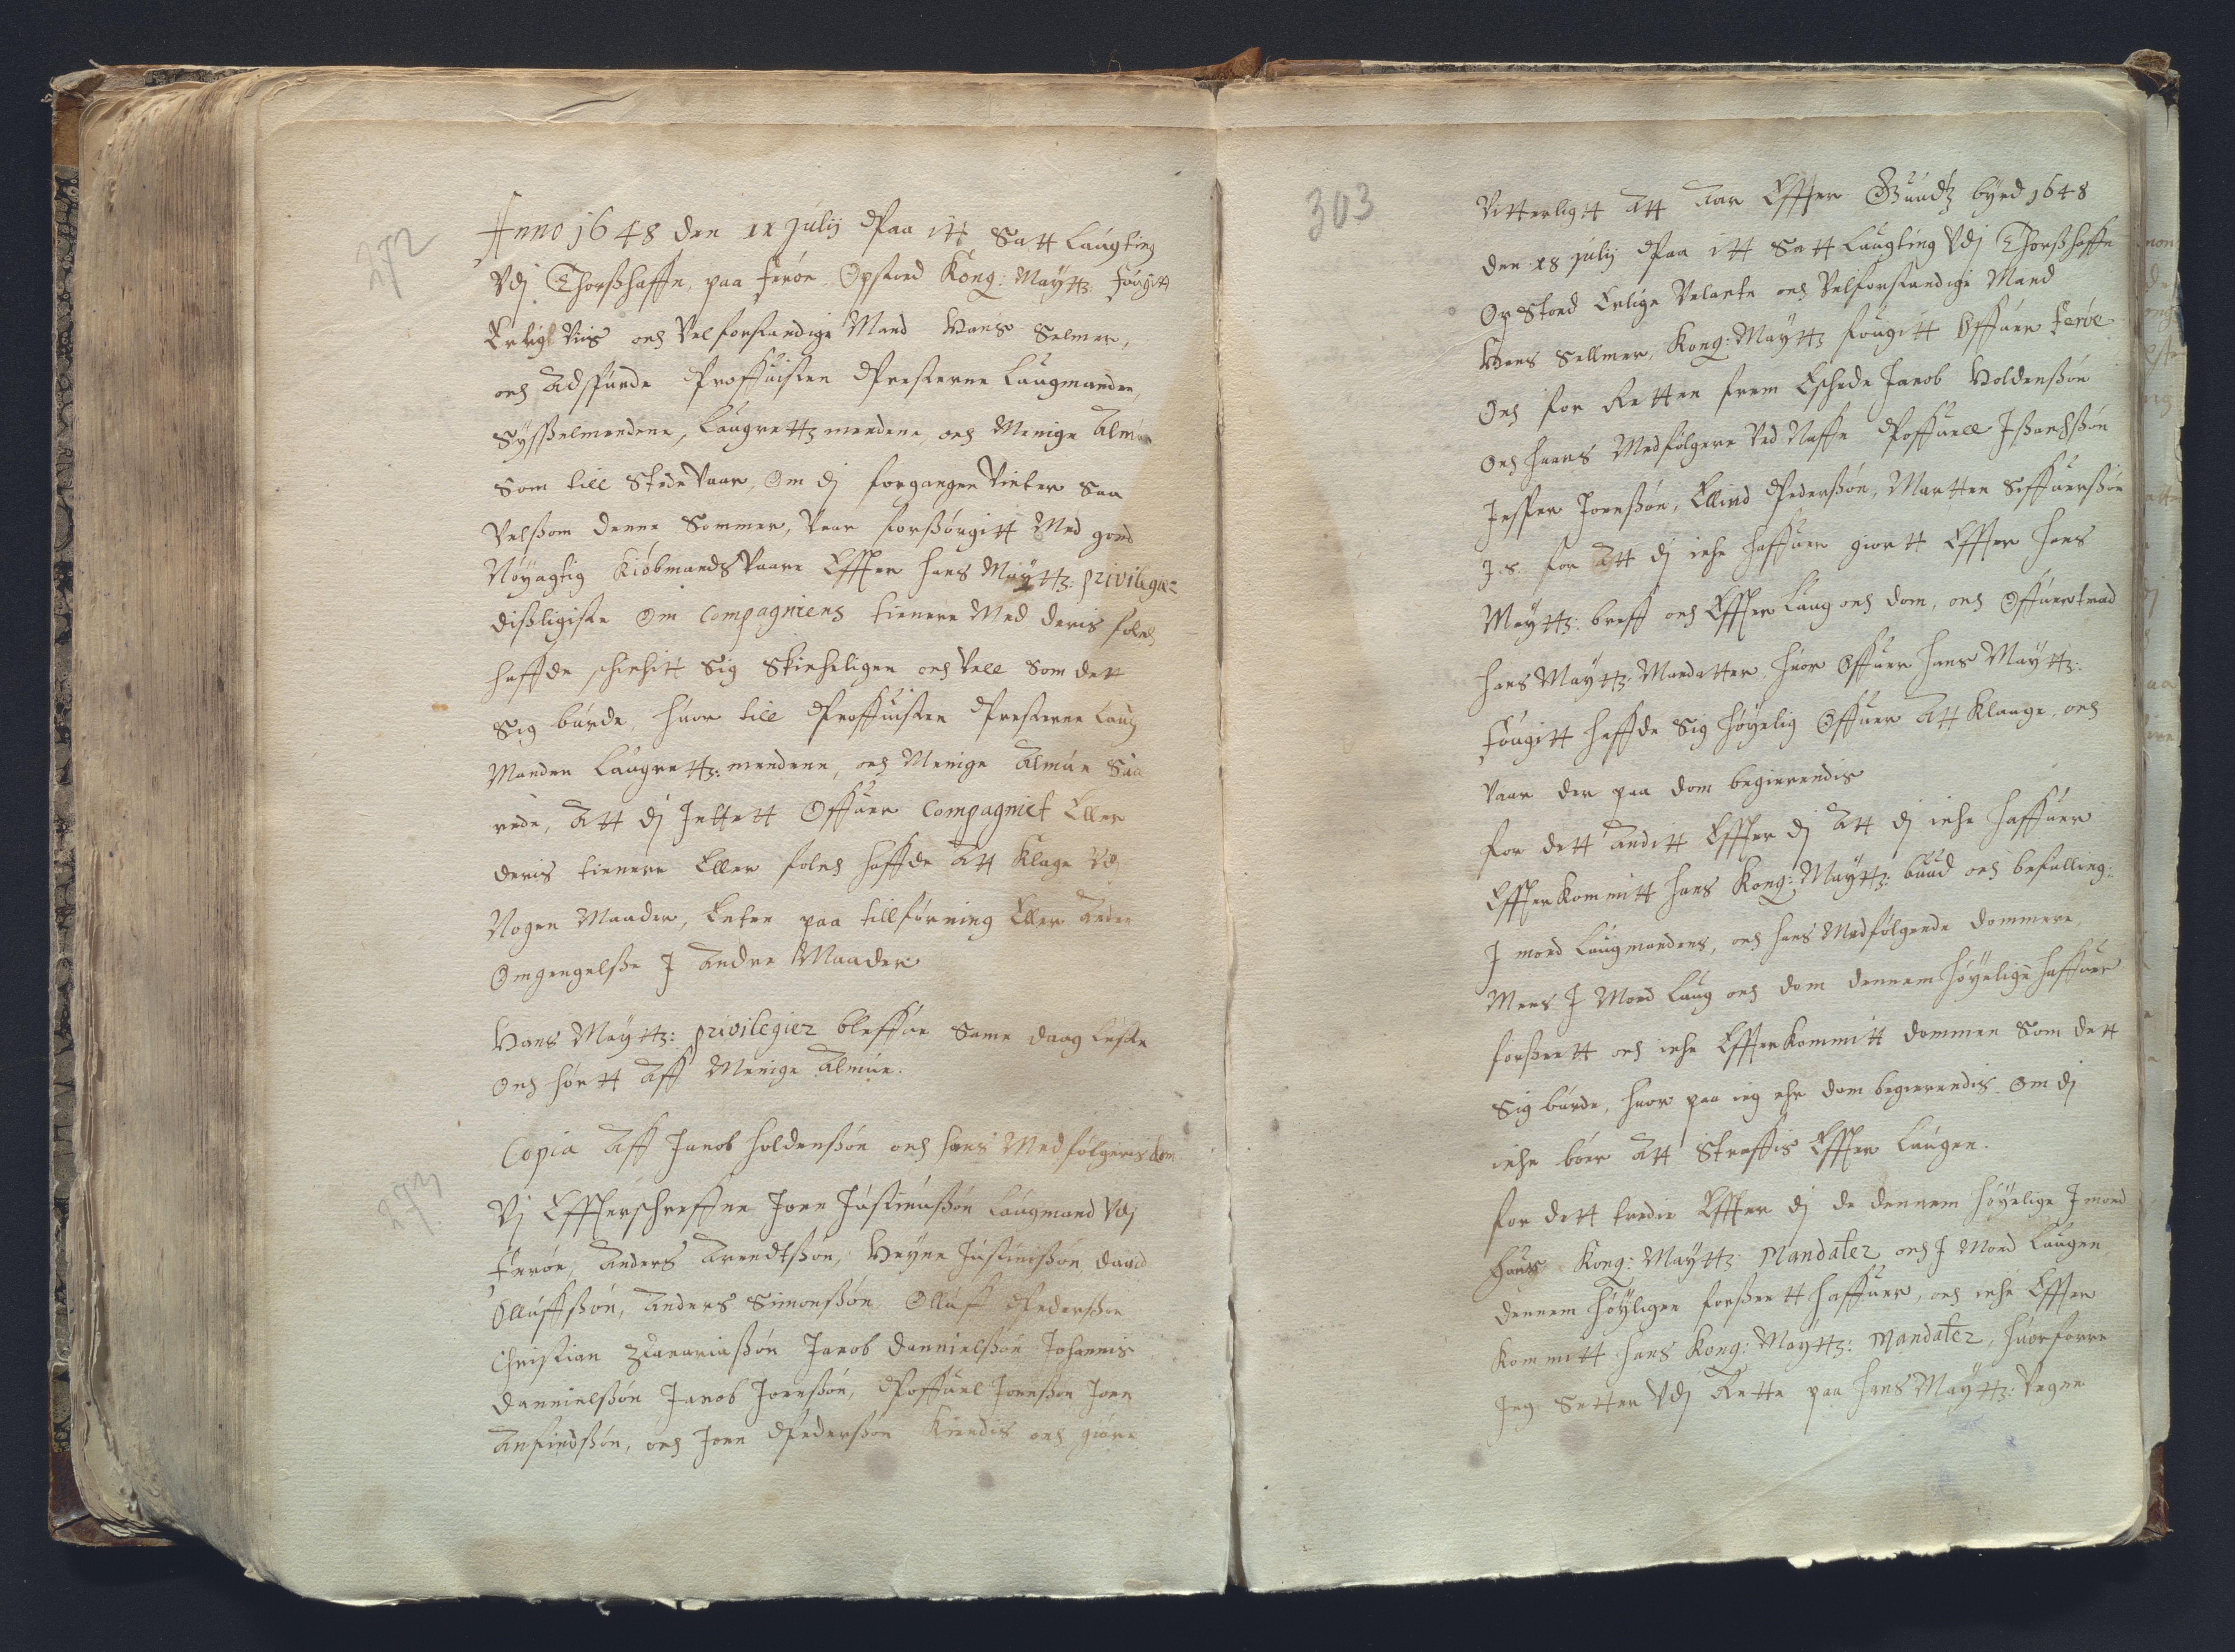 272
Anno 1648 den 18 Julij Paa itt Satt Laugting
Vdj Thorßhaffn, paa Ferøe Opstod Kong: Maytz: fougitt
Erligt Viis och Velforstandige Mand Hans Selmer,
och Adspurde Proffuisten Presterne Laugmanden,
Sysselmendene, Laugrettzmendene och Menige Almue
Som till Stede Vaar, Om dj forgangen Vinter Saa
Velsom denne Sommer, Vaar forsørgitt Med goed
Nøyagtig Kiøbmands Vaare Effter Hans Maytz: privilegier
disligiste Om Compagniens tienere Med deris folch
haffde schichitt Sig Skicheligen och Vell Som dett
Sig burde, huor till Proffuisten Presterne Laug
Manden Laugrettz: mendene, och Menige Almue Sua
rede, Att dj Inttett Offuer Compagniet Eller
deris tienere Eller folch haffde Att Klage Vdj
Nogen Maader, Enten paa tillførning Eller Anden
Omgengelße J Andre Maader
Hans Maytz: privilegier bleffue Same daag Leste
Och hørtt Aff Menige Almue.
273
Copia Aff Jacob Holdensøn och hans Medfølgeris dom
Vj Effterschreffne Joen Justinusøn Laugmand Vdj
Ferøe, Anders Arendtsøn, Heyne Justinisøn David
Olluffsøn, Anders Simonsøn Olluff Pedersøn
Christian Zacariasøn Jacob Dannielsøn Johannis
Dannielsøn Jacob Joensøn, Poffuel Joensøn Joen
Anfindsøn, och Joen Pedersøn Kiendis och giøre
303
Vitterligtt Att Aar Effter Guudtz byrd 1648
den 18 julij Paa itt Satt Laugting Vdj Thorßhaffn
Op Stod Erlige Velacte och Velforstandige Mand
Hans Sellmer, Kong: Maytz fougitt Offuer Ferøe
Och for Retten frem Eschede Jacob Holdensøn
Och hans Medfølgere Ved Naffn Poffuell Jsachsøn
Jesper Joensøn, Ellind Pedersøn, Martten Siffuersøn
J. s. for Att dj iche haffuer giortt Effter Hans
Maytz: breff och Effter Laug och dom, och Offuertrad
Hans Maytz: Mandatter, huor Offuer Hans Maytz:
Fougitt haffde Sig høyelig Offuer Att Klaage, och
Vaar der paa dom begierendis
For dett Anditt Effter dj Att dj iche haffuer
Effterkommitt Hans Kong: Maytz: buud och befalling:
J mod Laugmandens, och hans Medfølgende dommere
Mens J Mod Laug och dom dennem høyelige haffuer
forseett och iche Effterkommitt dommen Som dett
Sig burde, huor paa ieg ehr dom begierendis Om dj
iche bører Att Straffis Effter Laugen.
For dett tredie Effter dj de dennem høyelige J mod
Hans Kong: Maytz Mandater och J Mod Laugen
dennem høyligen forseett haffuer, och iche Effter
Kommitt Hans Kong: Maytz: Mandater, huorforre
Jeg Setter Vdj Rette paa Hans Maytz: Vegne